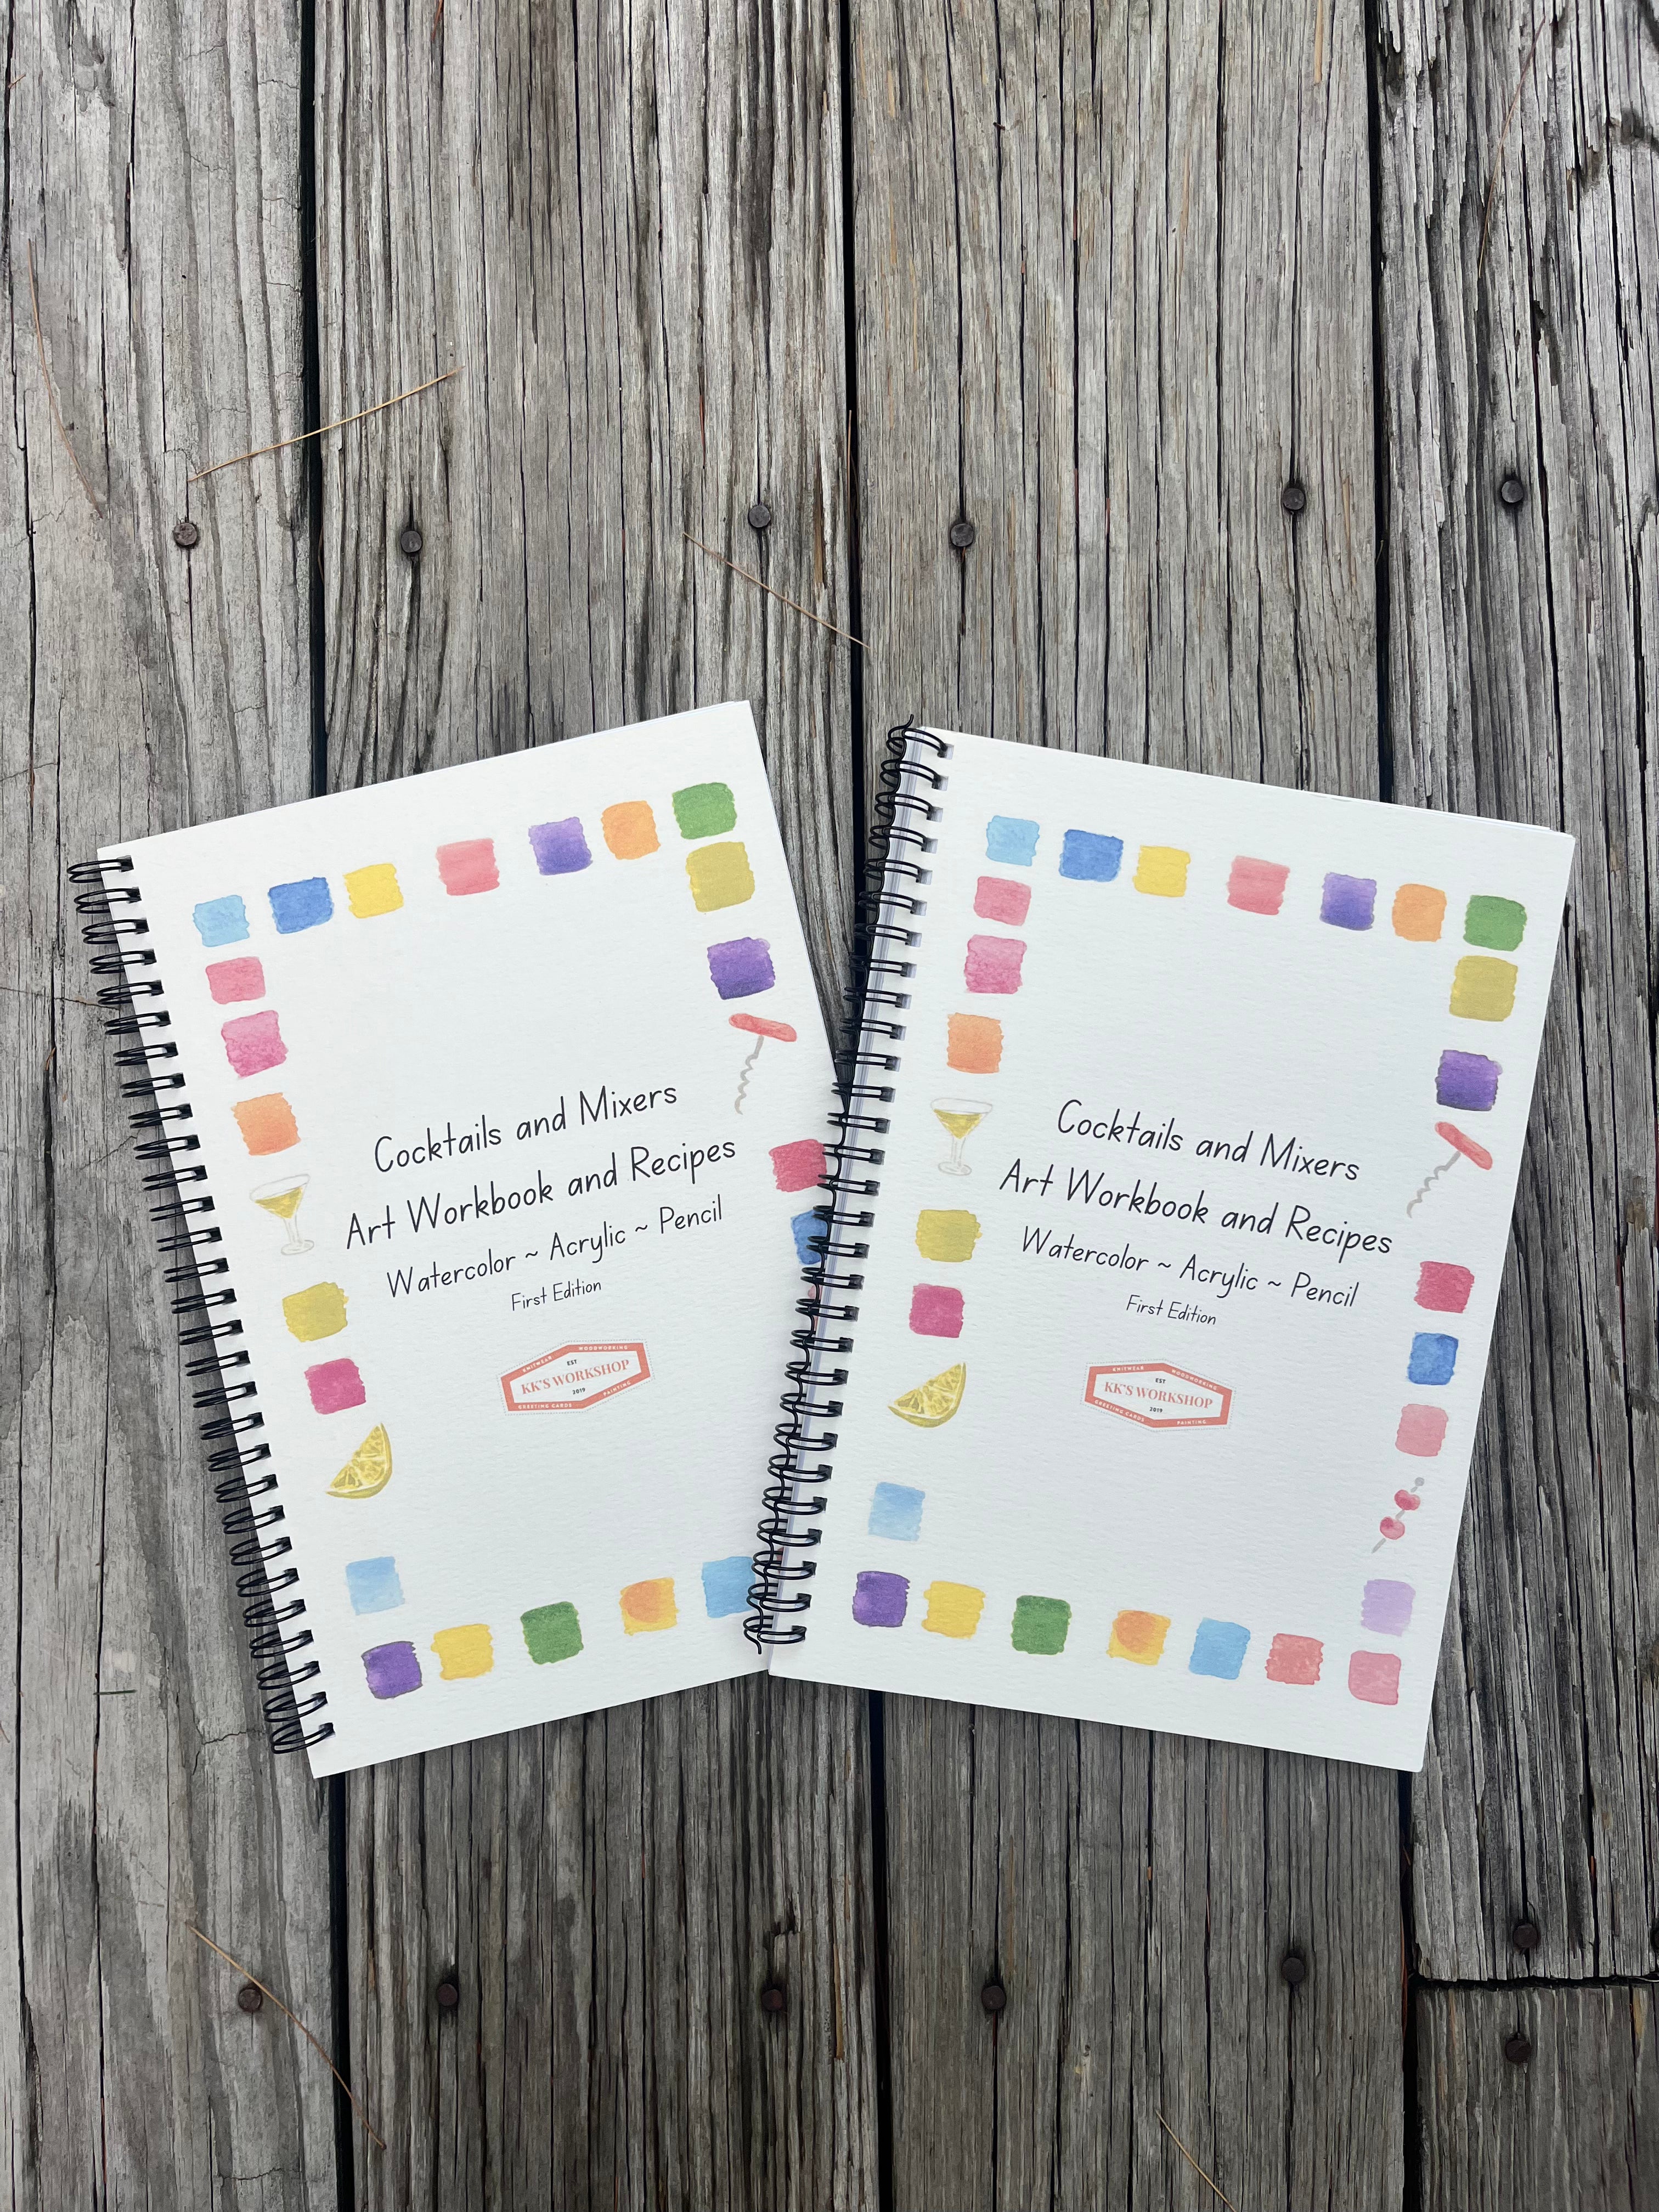 Cocktails and Mixers
Art Workbook and Recipes
Watercolor ~ Acrylic ~ Pencil
First Edition
KNITWEAR WOODWORKING
EST
KK'S WORKSHOP
2019
GREETING CARDS PAINTING
Cocktails and Mixers
Art Workbook and Recipes
Watercolor ~ Acrylic ~ Pencil
First Edition
KNITWEAR WOODWORKING
EST
KK'S WORKSHOP
2019
GREETING CARDS PAINTING